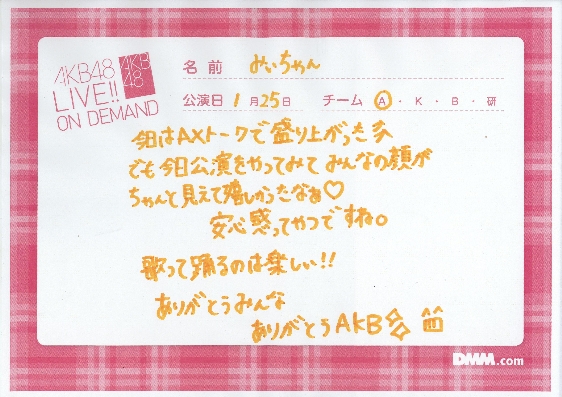 AKB48
LIVE!!
ON DEMAND
AKB
48
名前 みいちゃん
公演日 1月25日 チーム A・K・B・研
今日はAXトークで盛り上がった
でも今日公演をやってみてみんなの顔が
ちゃんと見えて嬉しかったなぁ♡
安心感ってやつですね。
歌って踊るのは楽しい!!
ありがとうみんな
ありがとうAKB
DMM.com